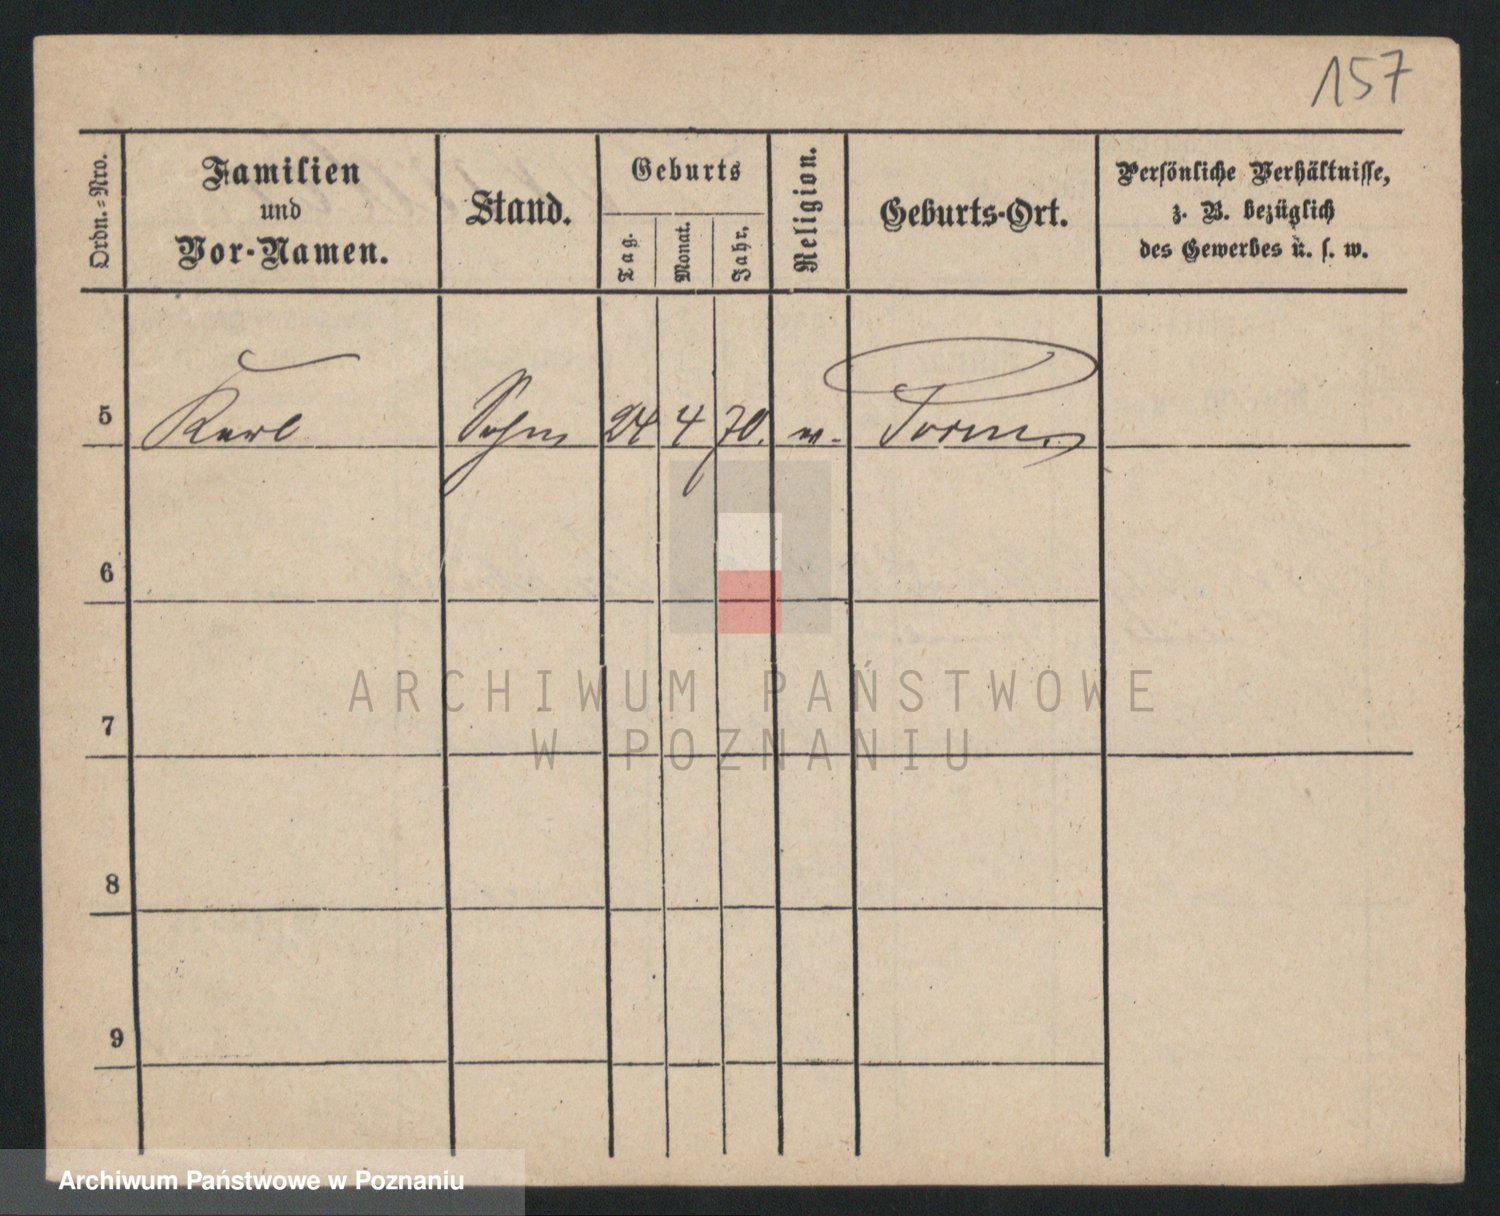 157
Ordn.=Nro.
Familien
und
Vor-Namen.
Stand.
Geburts
Tag.
Monat.
Jahr.
Religion.
Geburts-Ort.
Persönliche Verhältnisse,
z. B. bezüglich
des Gewerbes u. s. w.
5 Karl Sohn 24 4 70.
6
7
8
9
ARCHIWUM PAŃSTWOWE
W POZNANIU
Archiwum Państwowe w Poznaniu